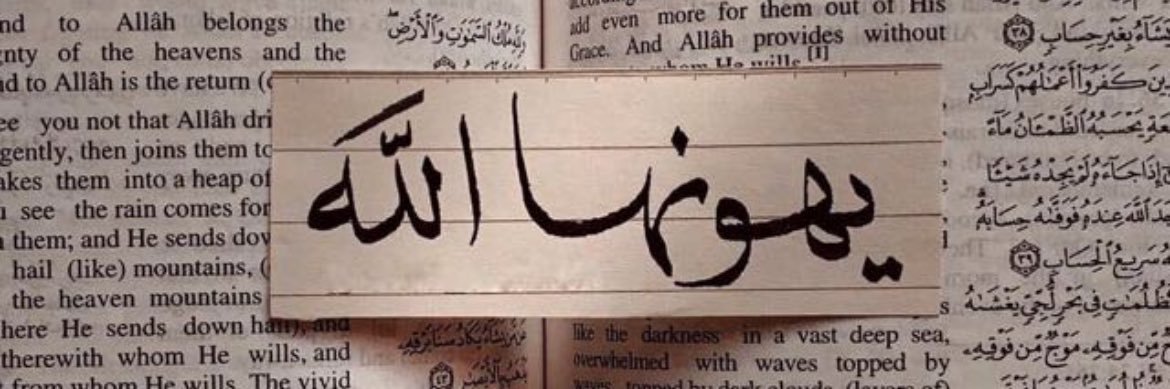 nd to Allâh belongs the
nty of the heavens and the
d to Allâh is the return
ee you not that Allâh dri
gently, then joins them to
akes them into a heap of
see the rain comes for
them; and He sends dov
hail (like) mountains,
the heaven mountains
here He sends down hail), and
therewith whom He wills, and
from whom He wills. The vivid
وَلِلَّهِ مُلْكُ السَّمَٰوَٰتِ وَالْأَرْضِ
يهونها الله
add even more for them out of His
Grace. And Allâh provides without
whom He wills.[1]
like the darkness in a vast deep sea,
overwhelmed with waves topped by
waves, topped by dark clouds, (layers of)
يَشَآءُ بِغَيْرِ حِسَابٍ ٣٨
كَفَرُوٓا۟ أَعْمَٰلُهُمْ كَسَرَابٍ
يَحْسَبُهُ الظَّمْـَٔانُ مَآءً
إِذَا جَآءَهُۥ لَمْ يَجِدْهُ شَيْـًٔا
اللَّهَ عِندَهُۥ فَوَفَّىٰهُ حِسَابَهُۥ
سَرِيعُ الْحِسَابِ ٣٩
فِى بَحْرٍ لُّجِّىٍّ يَغْشَىٰهُ
مِّن فَوْقِهِۦ مَوْجٌ مِّن فَوْقِهِۦ